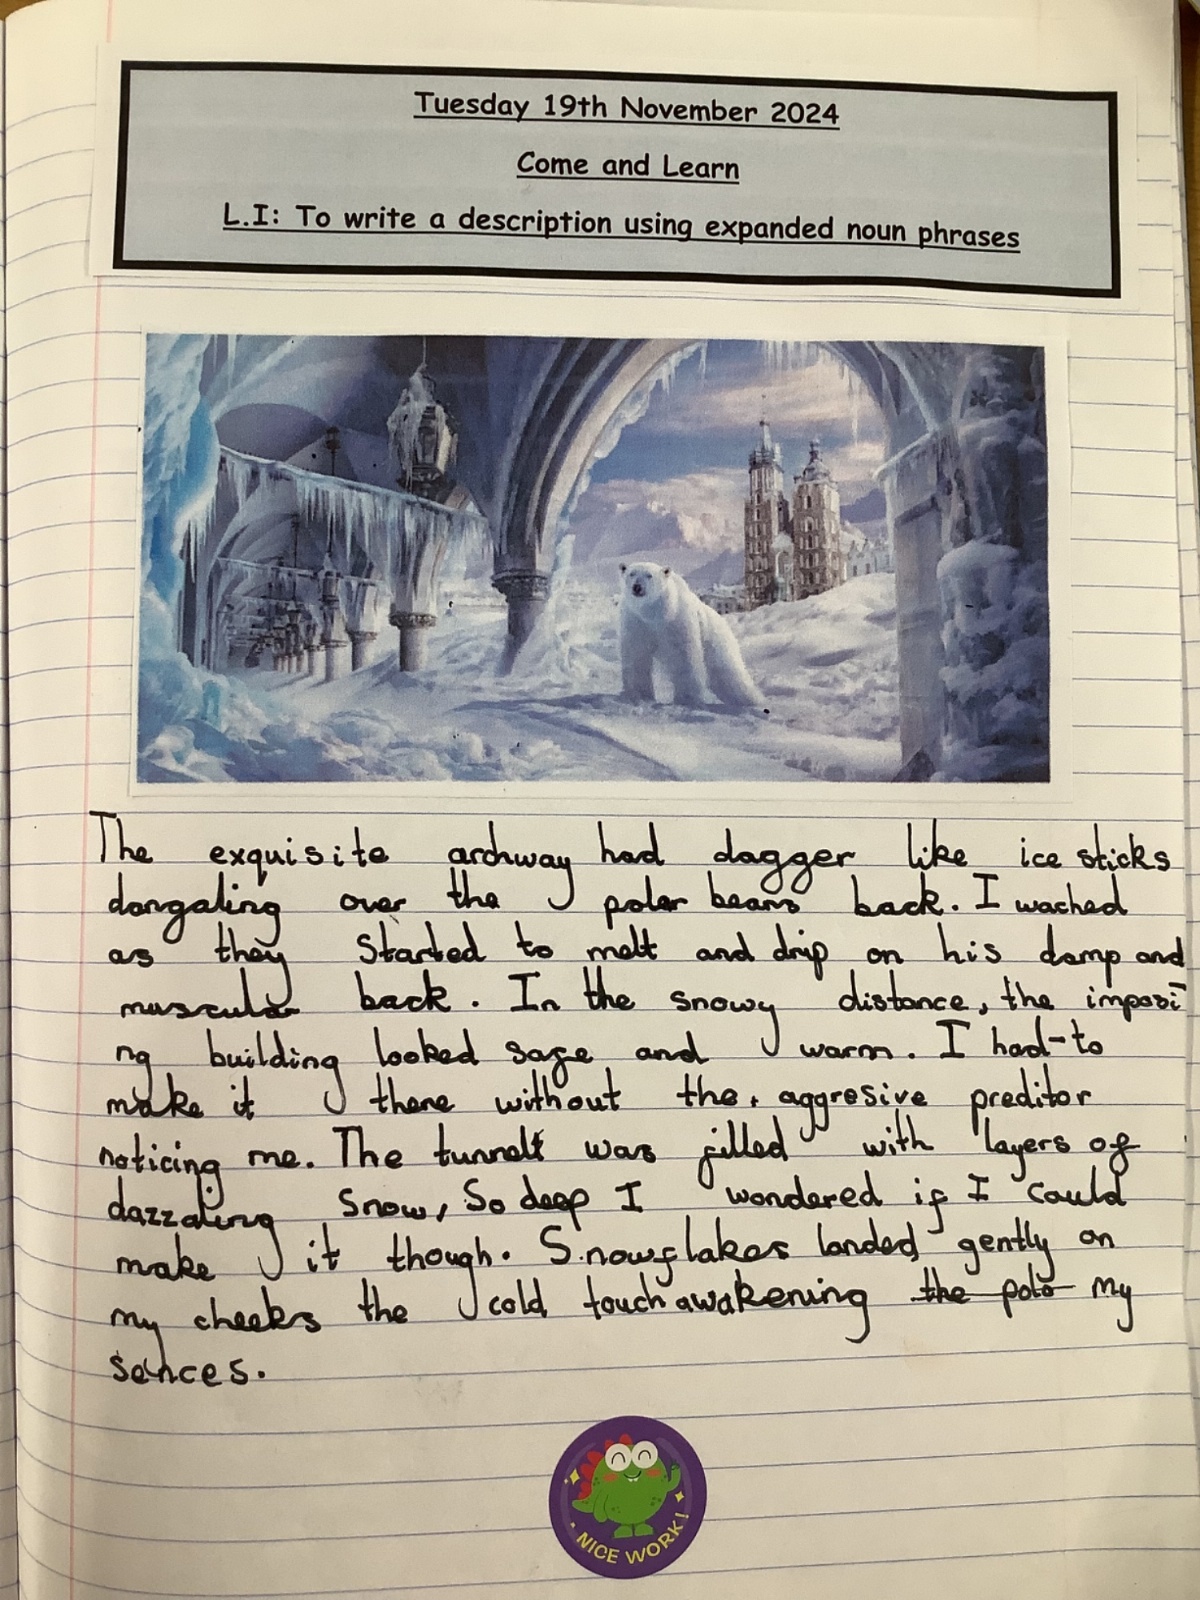 Tuesday 19th November 2024
Come and Learn
L.I: To write a description using expanded noun phrases
The exquisite archway had dagger like ice sticks
dangaling over the polar bears back. I wached
as they started to melt and drip on his damp and
muscular back. In the snowy distance, the imposi
ng building looked safe and warm. I had-to
make it there without the, aggresive preditor
noticing me. The tunnelt was filled with layers of
dazzaling snow, So deep I wondered if I could
make it though. Snowflakes landed gently on
my cheeks the cold touch awakening the pola my
sences.
NICE WORK!